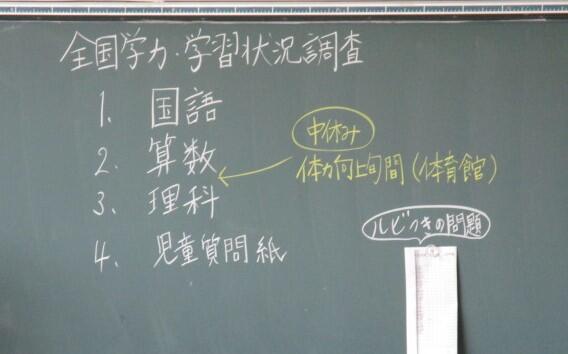 全国学力・学習状況調査
1. 国語
2. 算数
3. 理科
4. 児童質問紙
中休み
体力向上旬間(体育館)
ルビつきの問題